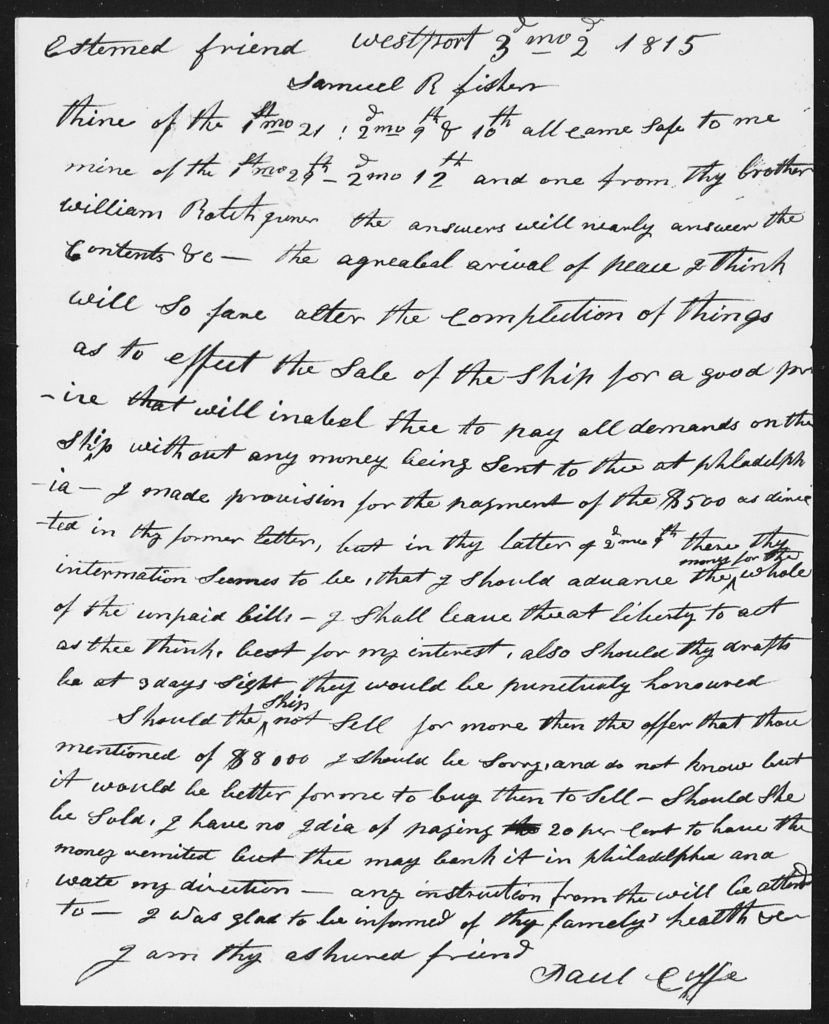 Estemed friend Westport 3d mo 2d 1815
Samuel R fisher
thine of the 1st mo 21 : 2d mo 9th & 10th all Came Safe to me
mine of the 1st mo 29th – 2d mo 12th and one from thy brother
William Rotch Juner the answers will nearly answer the
Contents &c — the agreabel arival of peace I think
will So fare alter the Complection of things
as to effect the Sale of the Ship for a good pr
-ice that will inabel thee to pay all demands on the
Ship without any money being Sent to thee at philadelph
-ia – I made provision for the payment of the $500 as direc
-ted in thy former letter, but in thy latter of 2d mo 9th there thy
intermation Seemes to be, that I Should advance the money for the whole
of the unpaid bills – I Shall leave thee at liberty to act
as thee thinks best for my interest, also Should thy drafts
be at 3 days Sight they would be punctualy honoured
Should the Ship not Sell for more then the offer that thou
mentioned of $8000 I Should be Sorry, and do not know but
it would be better for me to buy then to Sell – Should She
be Sold, I have no Idia of paying the 20 per Cent to have the
money remited but thee may bank it in philadelphia and
wate my direction — any instruction from the will be attend
to — I was glad to be informed of thy famely's health &c
I am thy ashured friend
Paul Cuffe